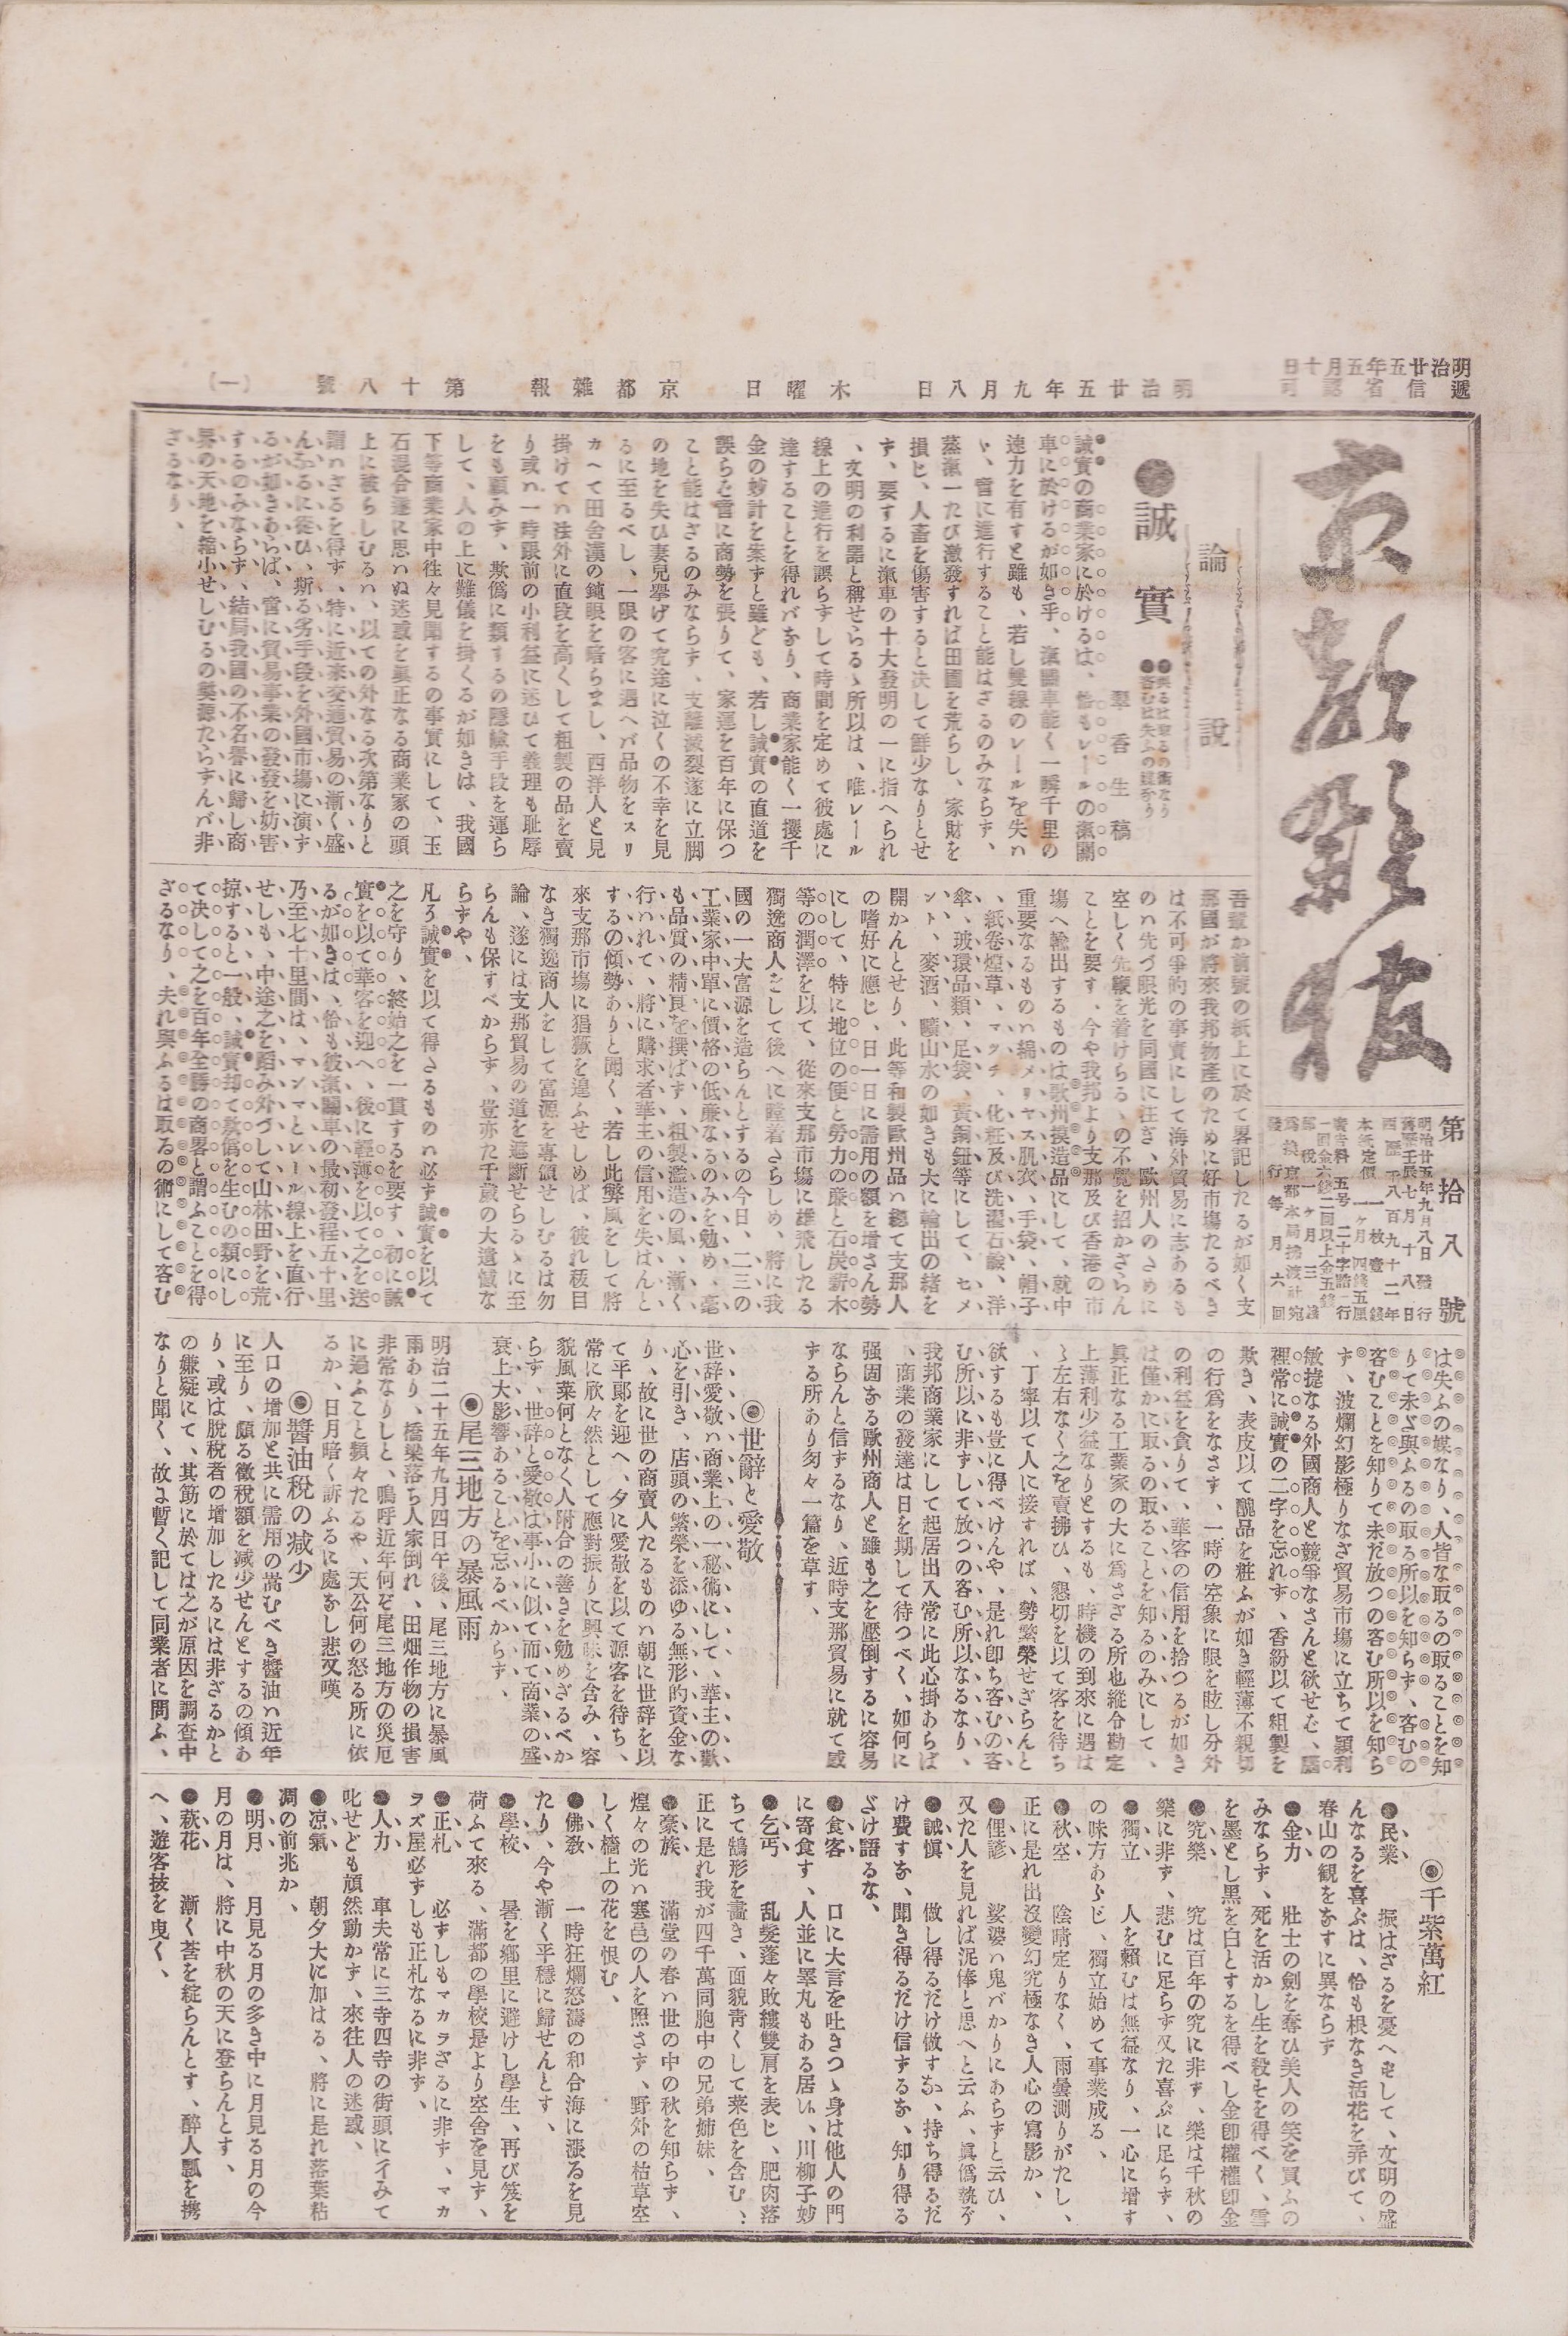 明治廿五年五月十日
遞信省認可
明治廿五年九月八日 木曜日 京都雜報 第十八號 (一)
京都雜報
第拾八號
明治廿五年九月八日發行
舊曆壬辰七月十八日
西曆千八百九十二年
本紙定價 一枚壹錢
一ヶ月四錢五厘
廣告料 五号二十字詰一行
一回金六錢二回以上金五錢
郵税一ヶ月三錢
發行每月六回
論說
●誠實
●與るは取るの術なり
●吝むは失ふの媒なり
翠香生稿
誠實の商業家に於けるは、恰もレールの滊關
車に於けるが如き乎、滊關車能く一瞬千里の
速力を有すと雖も、若し雙線のレールを失ハ
ヾ、啻に進行すること能はざるのみならず、
蒸滊一たび激發すれば田園を荒らし、家財を
損ヒ、人畜を傷害すると决して鮮少なりとせ
ず、要するに滊車の十大發明の一に指へられ
、文明の利器と稱せらるゝ所以は、唯レール
線上の進行を誤らずして時間を定めて彼處に
達することを得れバあり、商業家能く一攫千
金の妙計を案ずと雖ども、若し誠實の直道を
誤らむ啻に商勢を張りて、家運を百年に保つ
こと能はざるのみならず、支離滅裂遂に立脚
の地を失ひ妻兒擧げて究途に泣くの不幸を見
るに至るべし、一限の客に遇へバ品物をスリ
カヘて田舍漢の鈍眼を暗らまし、西洋人と見
掛けてハ法外に直段を高くして粗製の品を賣
り或ハ一時眼前の小利益に迷ひて義理も耻辱
をも顧みず、欺僞に類するの隱險手段を運ら
して、人の上に難儀を掛くるが如きは、我國
下等商業家中徃々見聞するの事實にして、玉
石混合遂に思ハぬ迷惑を眞正なる商業家の頭
上に被らしむるハ、以ての外なる次第なりと
謂ハざるを得ず、特に近來交通貿易の漸く盛
んなるに從ひ、斯る劣手段を外國市塲に演ず
るが如きあらば、啻に貿易事業の發發を妨害
するのみならず、結局我國の不名譽に歸し商
界の天地を縮小せしむるの奬源たらずんバ非
ざるなり、
吾輩か前號の紙上に於て畧記したるが如く支
那國が將來我邦物產のために好市塲たるべき
は不可爭的の事實にして海外貿易に志あるも
のハ先づ眼光を同國に注ぎ、歐州人のために
空しく先鞭を着けらるゝの不覺を招かざらん
ことを要す、今や我邦より支那及び香港の市
塲へ輸出するものは歐州摸造品にして、就中
重要なるものハ綿メリヤス肌衣、手袋、帽子
、紙卷煙草、マツチ、化粧及び洗濯石鹼、洋
傘、玻環品類、足袋、黃銅鈕等にして、セメ
ント、麥酒、曠山水の如きも大に輸出の緖を
開かんとせり、此等和製歐州品ハ總て支那人
の嗜好に應じ、日一日に需用の額を增さん勢
にして、特に地位の便と勞力の廉と石炭薪木
等の潤澤を以て、從來支那市塲に雄飛したる
獨逸商人をして後へに瞠着さらしめ、將に我
國の一大富源を造らんとするの今日、二三の
工業家中單に價格の低廉なるのみを勉め、毫
も品質の精良を撰ばず、粗製濫造の風、漸く
行ハれて、將に購求者華主の信用を失はんと
するの傾勢ありと聞く、若し此弊風をして將
來支那市塲に猖獗を逞ふせしめば、彼れ秡目
なき獨逸商人をして富源を專領せしむるは勿
論、遂には支那貿易の道を遮斷せらるゝに至
らんも保すべからず、豈亦た千歲の大遺憾な
らずや、
凡ろ誠實を以て得さるものハ必ず誠實を以て
之を守り、終始之を一貫するを要す、初に誠
實を以て華客を迎へ、後に輕薄を以て之を送
るが如きは、恰も彼滊關車の最初發程五十里
乃至七十里間は、マンマとレール線上を直行
せしも、中途之を蹈み外づして山林田野を荒
掠すると一般、誠實却て欺僞を生むの類にし
て决して之を百年全勝の商畧と謂ふことを得
ざるなり、夫れ與ふるは取るの術にして客む
は失ふの媒なり、人皆な取るの取ることを知
りて未ざ與ふるの取る所以を知らず、客むの
客むことを知りて未だ放つの客む所以を知ら
ず、波爛幻影極りなき貿易市塲に立ちて頴利
敏捷なる外國商人と競爭なさんと欲せむ、腦
裡常に誠實の二字を忘れず、香紛以て粗製を
欺き、表皮以て醜品を粧ふが如き輕薄不親切
の行爲をなさず、一時の空象に眼を眩し分外
の利益を貪りて、華客の信用を拾つるが如き
は僅かに取るの取ることを知るのみにして、
眞正なる工業家の大に爲さざる所也縱令勘定
上薄利少益なりとするも、時機の到來に遇は
ゞ左右なく之を賣拂ひ、懇切を以て客を待ち
、丁寧以て人に接すれば、勢繁榮せざらんと
欲するも豈に得べけんや、是れ卽ち客むの客
む所以に非ずして放つの客む所以なるなり、
我邦商業家にして起居出入常に此心掛あらば
、商業の發達は日を期して待つべく、如何に
强固なる歐州商人と雖も之を壓倒するに容易
ならんと信ずるなり、近時支那貿易に就て感
ずる所あり匆々一篇を草す、
◉世辭と愛敬
世辞愛敬ハ商業上の一秘術にして、華主の歡
心を引き、店頭の繁榮を添ゆる無形的資金な
り、故に世の商賣人たるものハ朝に世辞を以
て平郞を迎へ、夕に愛敬を以て源客を待ち、
常に欣々然として應對振りに興味を含み、容
貌風葉何となく人附合の善きを勉めざるべか
らず、世辞と愛敬は事小に似て而て商業の盛
衰上大影響あることを忘るべからず、
◉尾三地方の暴風雨
明治二十五年九月四日午後、尾三地方に暴風
雨あり、橋梁落ち人家倒れ、田畑作物の損害
非常なりしと、嗚呼近年何ぞ尾三地方の災厄
に過ふこと頻々たるや、天公何の怒る所に依
るか、日月暗く訴ふるに處なし悲又嘆
◉醬油稅の减少
人口の增加と共に需用の嵩むべき醬油ハ近年
に至り、頗る徵稅額を减少せんとするの傾あ
り、或は脫稅者の增加したるには非ざるかと
の嫌疑にて、其筋に於ては之が原因を調查中
なりと聞く、故よ暫く記して同業者に問ふ、
◉千紫萬紅
●民業　振はざるを憂へずして、文明の盛
んなるを喜ぶは、恰も根なき活花を弄びて、
春山の観をなすに異ならず
●金力　壯士の劍を奪ひ美人の笑を買ふの
みならず、死を活かし生を殺すを得べく、雪
を墨とし黑を白とするを得べし金卽權權卽金
●究樂　究は百年の究に非ず、樂は千秋の
樂に非ず、悲むに足らず又た喜ぶに足らず、
●獨立　人を賴むは無益なり、一心に增す
の味方あらじ、獨立始めて事業成る、
●秋空　陰晴定りなく、雨曇測りがたし、
正に是れ出沒變幻究極なき人心の寫影か、
●俚諺　娑婆ハ鬼バかりにあらずと云ひ、
又た人を見れば泥俸と思へと云ふ、眞僞孰ぞ
●誠愼　做し得るだけ做すな、持ち得るだ
け費すな、聞き得るだけ信ずるな、知り得る
ざけ語るな、
●食客　口に大言を吐きつゝ身は他人の門
に寄食す、人並に睪丸もある居い、川柳子妙
●乞丐　乱髮蓬々敗縷雙肩を表ヒ、肥肉落
ちて鵠形を畵き、面貌靑くして菜色を含む、
正に是れ我が四千萬同胞中の兄弟姉妹、
●豪族　滿堂の春ハ世の中の秋を知らず、
煌々の光ハ塞邑の人を照さず、野外の枯草空
しく檣上の花を恨む、
●佛敎　一時狂爛怒濤の和合海に漲るを見
たり、今や漸く平穩に歸せんとす、
●學校　暑を鄕里に避けし學生、再び笈を
荷ふて來る、滿都の學校是より空舍を見ず、
●正札　必ずしもマカラざるに非ず、マカ
ラズ屋必ずしも正札なるに非ず、
●人力　車夫常に三寺四寺の街頭に彳みて
叱せども頑然動かず、來往人の迷惑、
●凉氣　朝夕大に加はる、將に是れ落葉粘
凋の前兆か、
●明月　月見る月の多き中に月見る月の今
月の月は、將に中秋の天に登らんとす、
●萩花　漸く莟を綻らんとす、醉人瓢を携
へ、遊客技を曳く、